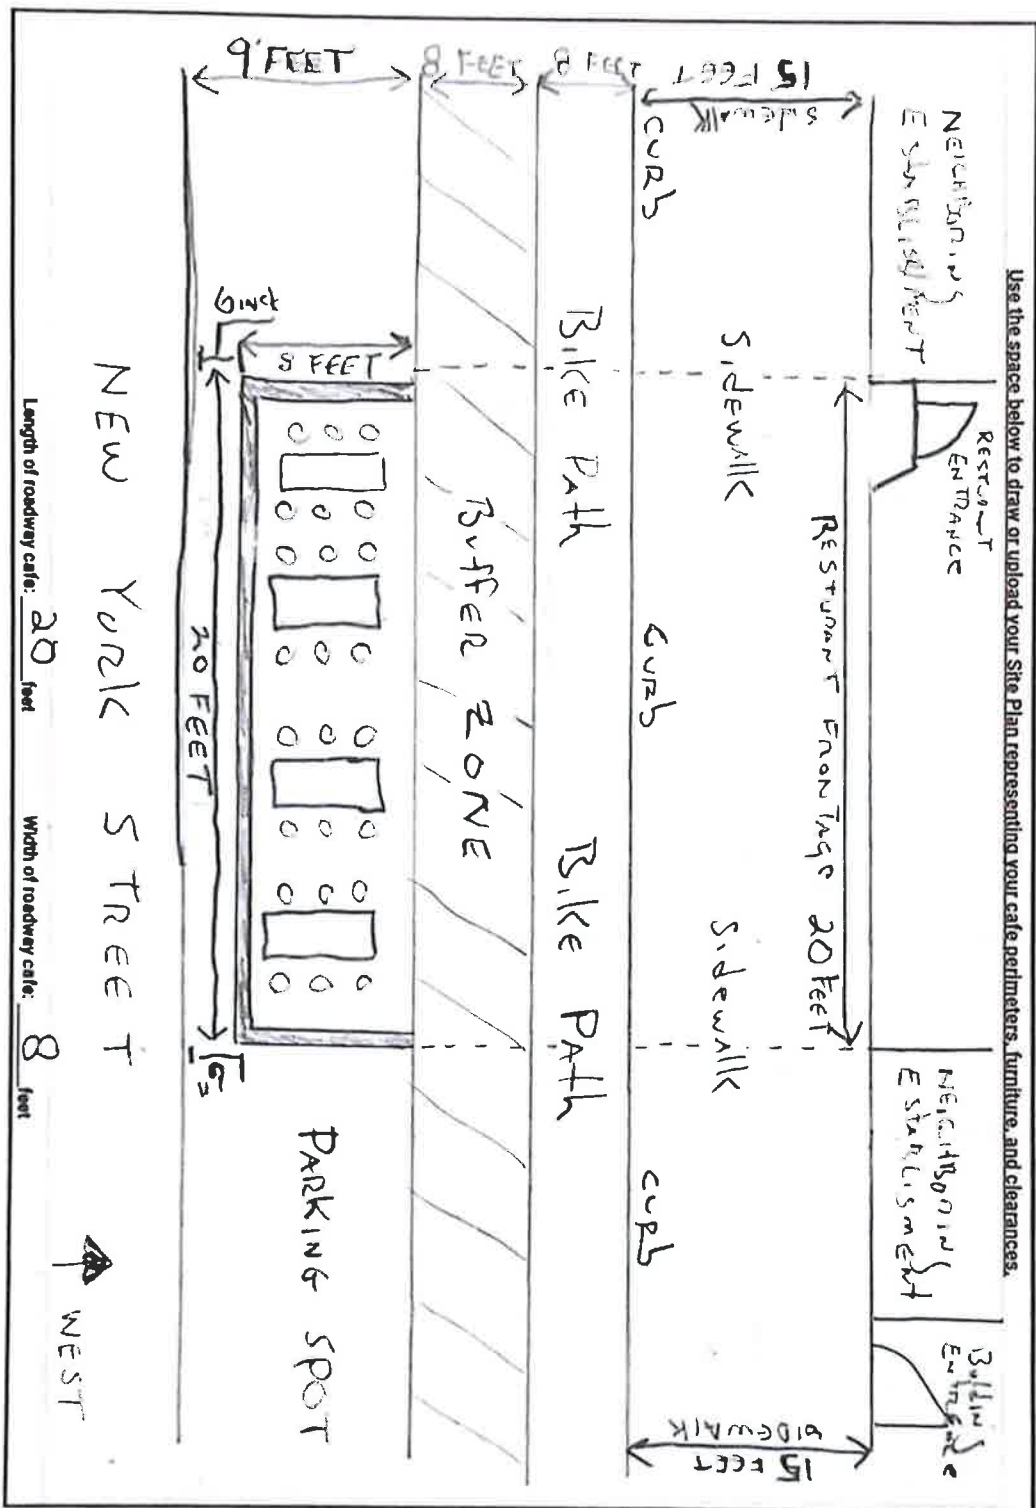 Use the space below to draw or upload your Site Plan representing your cafe perimeters, furniture, and clearances.
NEIGHBORING
ESTABLISHMENT
RESTURANT
ENTRANCE
NEIGHBORING
ESTABLISMENT
BuildiNG
ENTRENCE
15 FEET
SIDEWALK
RESTURANT FRONTAGE 20 FEET
15 FEET
SIDEWALK
Sidewalk
Sidewalk
CURb
CURb
CURb
8 FEET
Bike Path
Bike Path
8 FEET
BuffER ZONE
9' FEET
8 FEET
6 inch
6"
20 FEET
PARKING SPOT
NEW YORK STREET
WEST
Length of roadway cafe: 20 feet
Width of roadway cafe: 8 feet